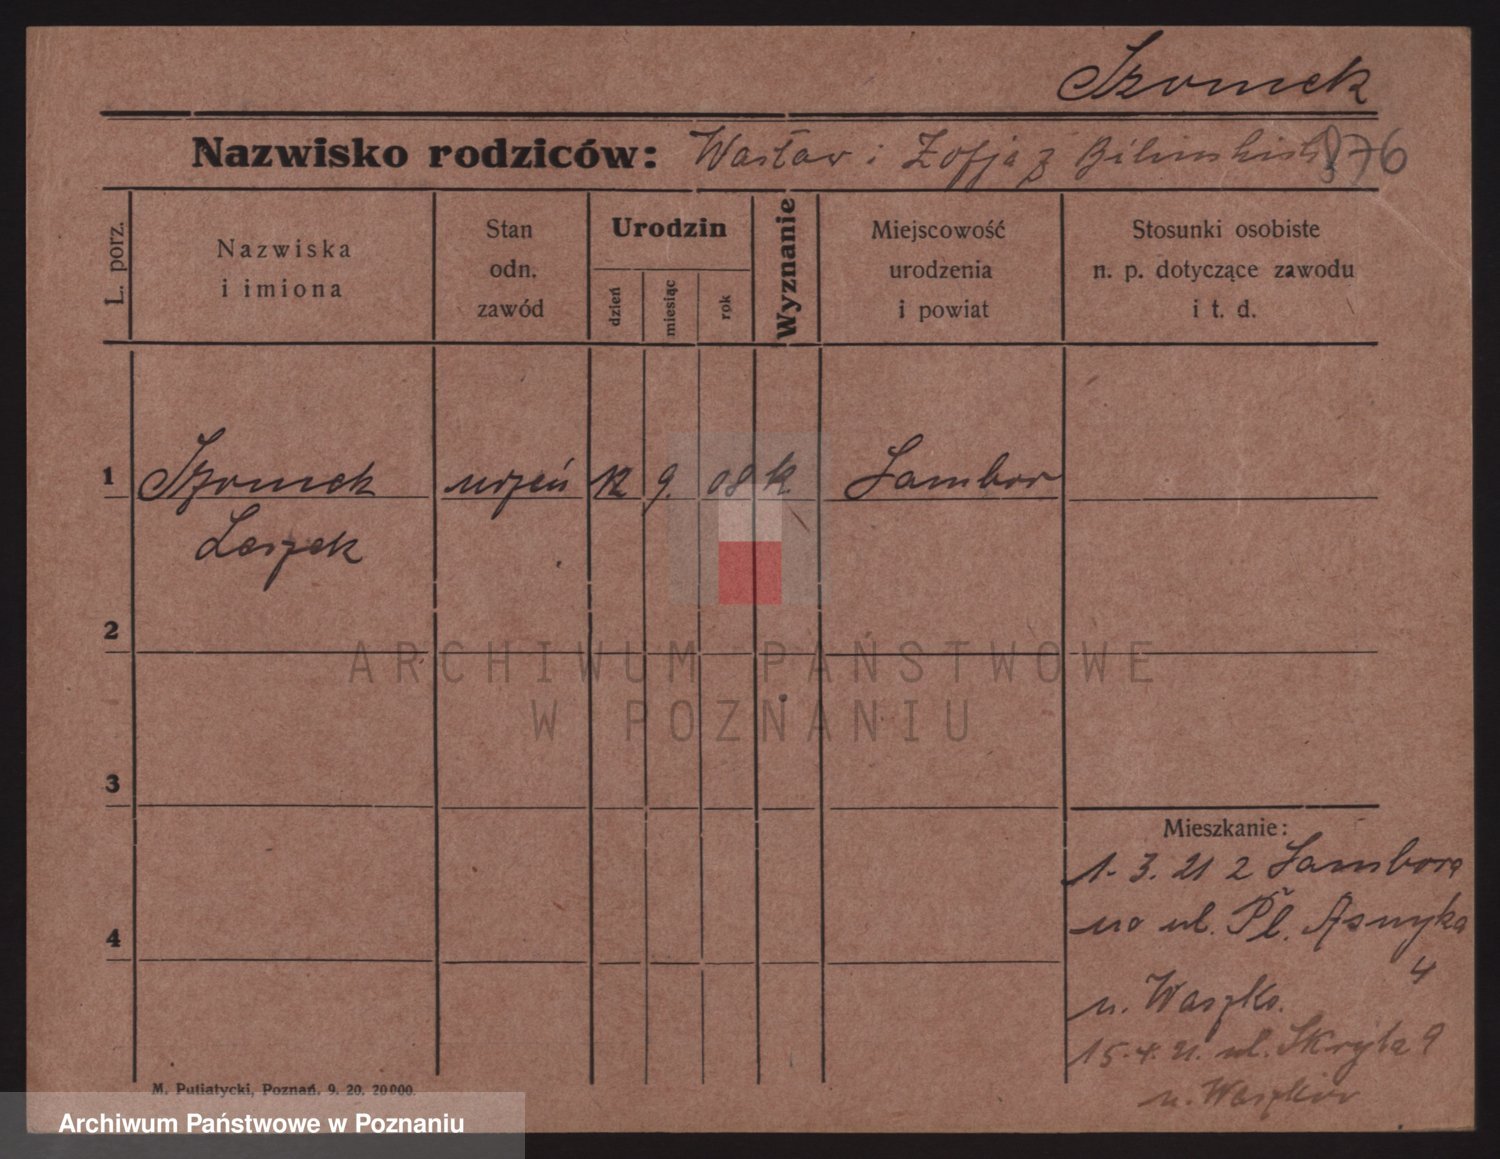 Szomek
Nazwisko rodziców: Wacław i Zofja z Bilińskich 876
L. porz.
Nazwiska
i imiona
Stan
odn.
zawód
Urodzin
dzień
miesiąc
rok
Wyznanie
Miejscowość
urodzenia
i powiat
Stosunki osobiste
n. p. dotyczące zawodu
i t. d.
1 Szomek uczeń 12 9. 08 k. Sambor
Leszek
2
ARCHIWUM PAŃSTWOWE
W POZNANIU
3
4
Mieszkanie:
1. 3. 21 z Sambora
na ul. Pl. Asnyka
4
u. Waszko.
15. 4. 21. ul. Skryta 9
u. Waszków
M. Putiatycki, Poznań. 9. 20. 20000.
Archiwum Państwowe w Poznaniu